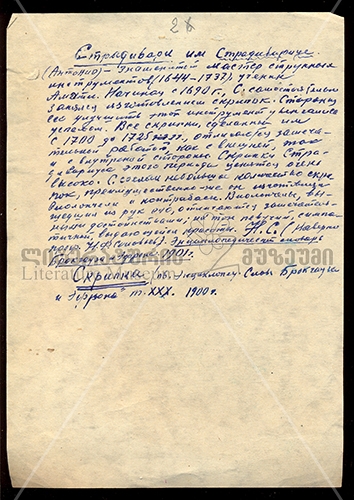 2
Страдивари им Страдивариус.
(Антонио) - Знаменитый мастер струнных
инструментов (1644-1737), ученик
Амати. Начиная с 1690 г., С. самостоятельно
занялся изготовлением скрипок. Старания
его улучшить этот инструмент увенчались
успехом. Все скрипки, сделанные им
с 1700 до 1725, отличаются замеча-
тельной работой, как с внешней, так
и с внутренной стороны. Скрипки Стра-
дивариуса этого периода ценятся очень
высоко. С. сделал небольшое количество скри-
пок, преимущественно же он изготовлял
виолончели и контрабасы. Виолончели, вы-
шедшия из рук его, отличаются замечатель-
ными достоинствами; их тон певучий, симпа-
тичный, выдающейся красоты. Н. С. (Наверно
Н. Соловьев). Энциклопедический словарь
Брокгауза - Эфрон 1901 г.
Скрипка (см. Энциклопед. Слов. Брокгауза
и Эфрона" т. XXX. 1900 г.
ლიტერატურის მუზეუმი
Literature Museum